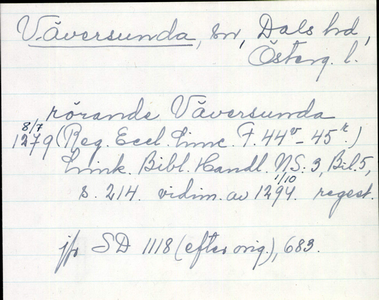 Väversunda, sn, Dals hd,
Österg. l.
rörande Väversunda
8/7
1279 (Reg. Eccl. Linc. F. 44v - 45r.)
Link. Bibl. Handl. N.S: 3, Bil. 5,
1/10
s. 214. vidim. av 1294. regest.
jfr SD 1118 (efter orig.), 683.